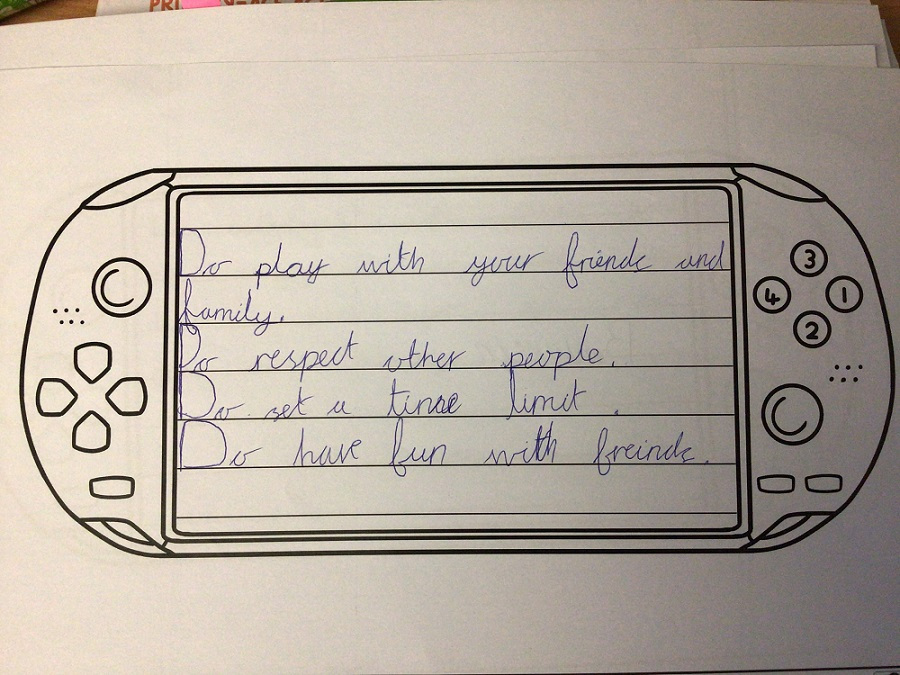 Do play with your friends and
family.
Do respect other people.
Do set a time limit.
Do have fun with freinds.
3
4 1
2